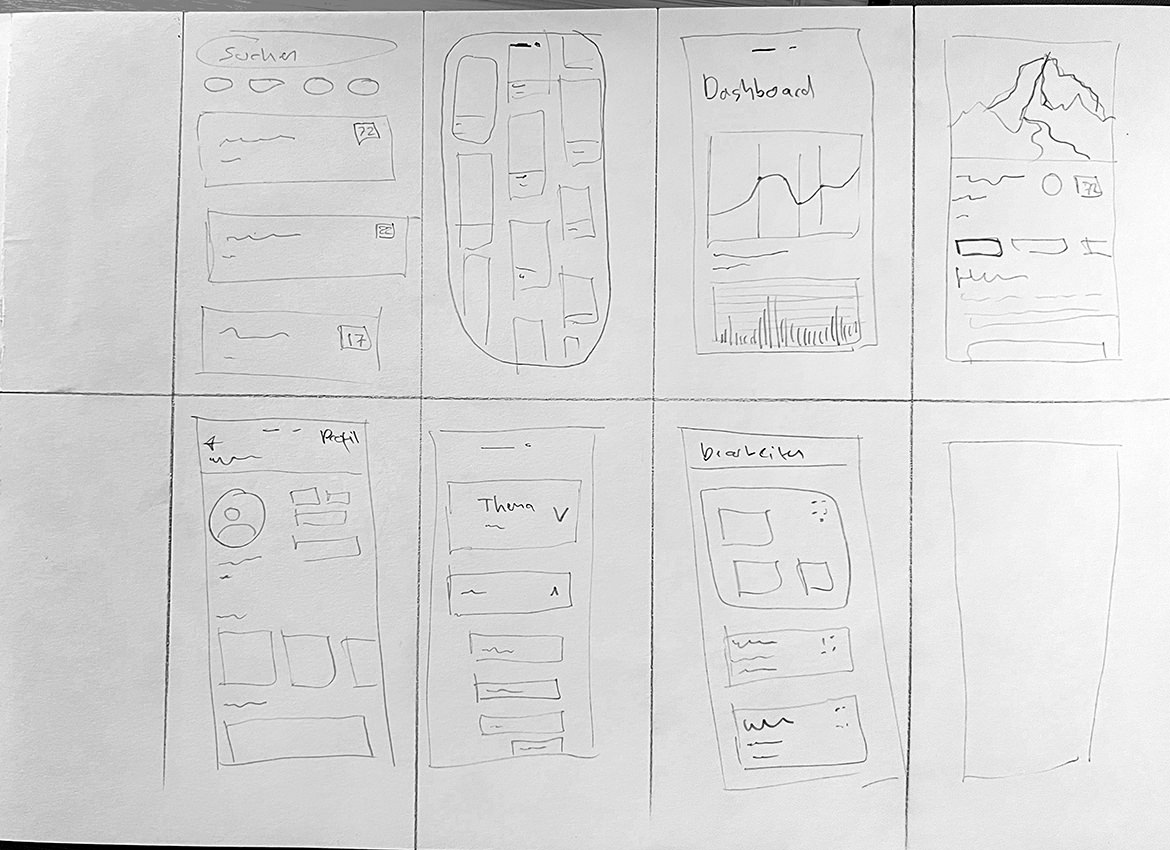 Suchen
72
22
17
Dashboard
72
Profil
Thema
bearbeiten